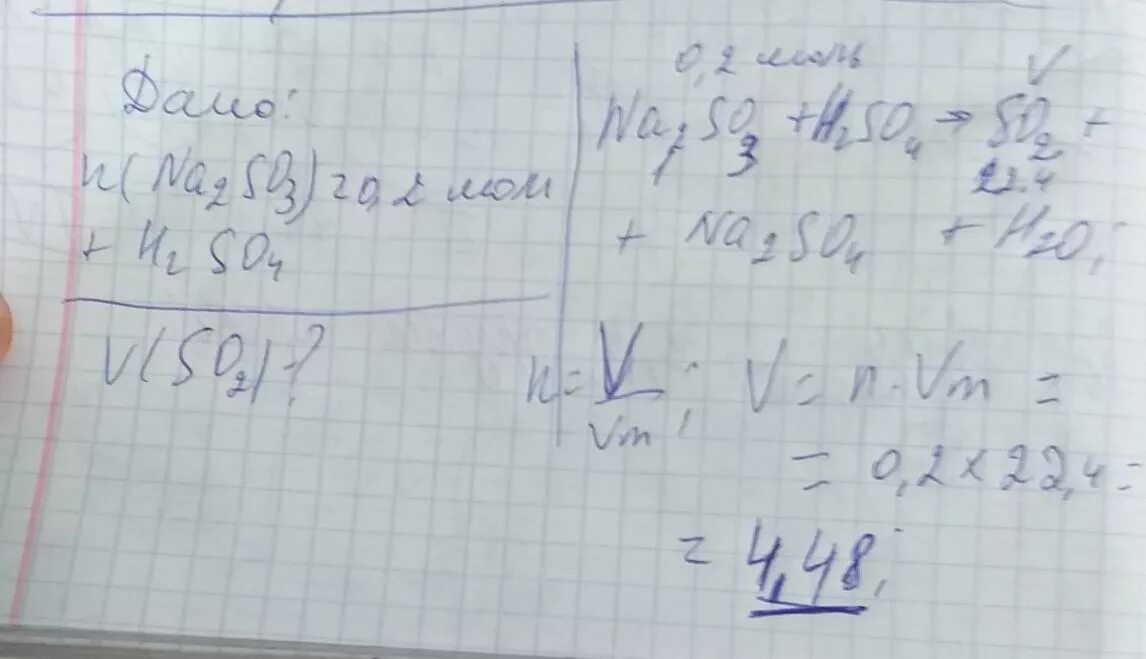 Дано:
n(Na2SO3)=0,2 моль
+ H2SO4
V(SO2)?
0,2 моль V
Na2SO3 + H2SO4 → SO2 +
1 22.4
+ Na2SO4 + H2O;
n = V/Vm; V = n · Vm =
= 0,2 × 22,4 =
= 4,48;